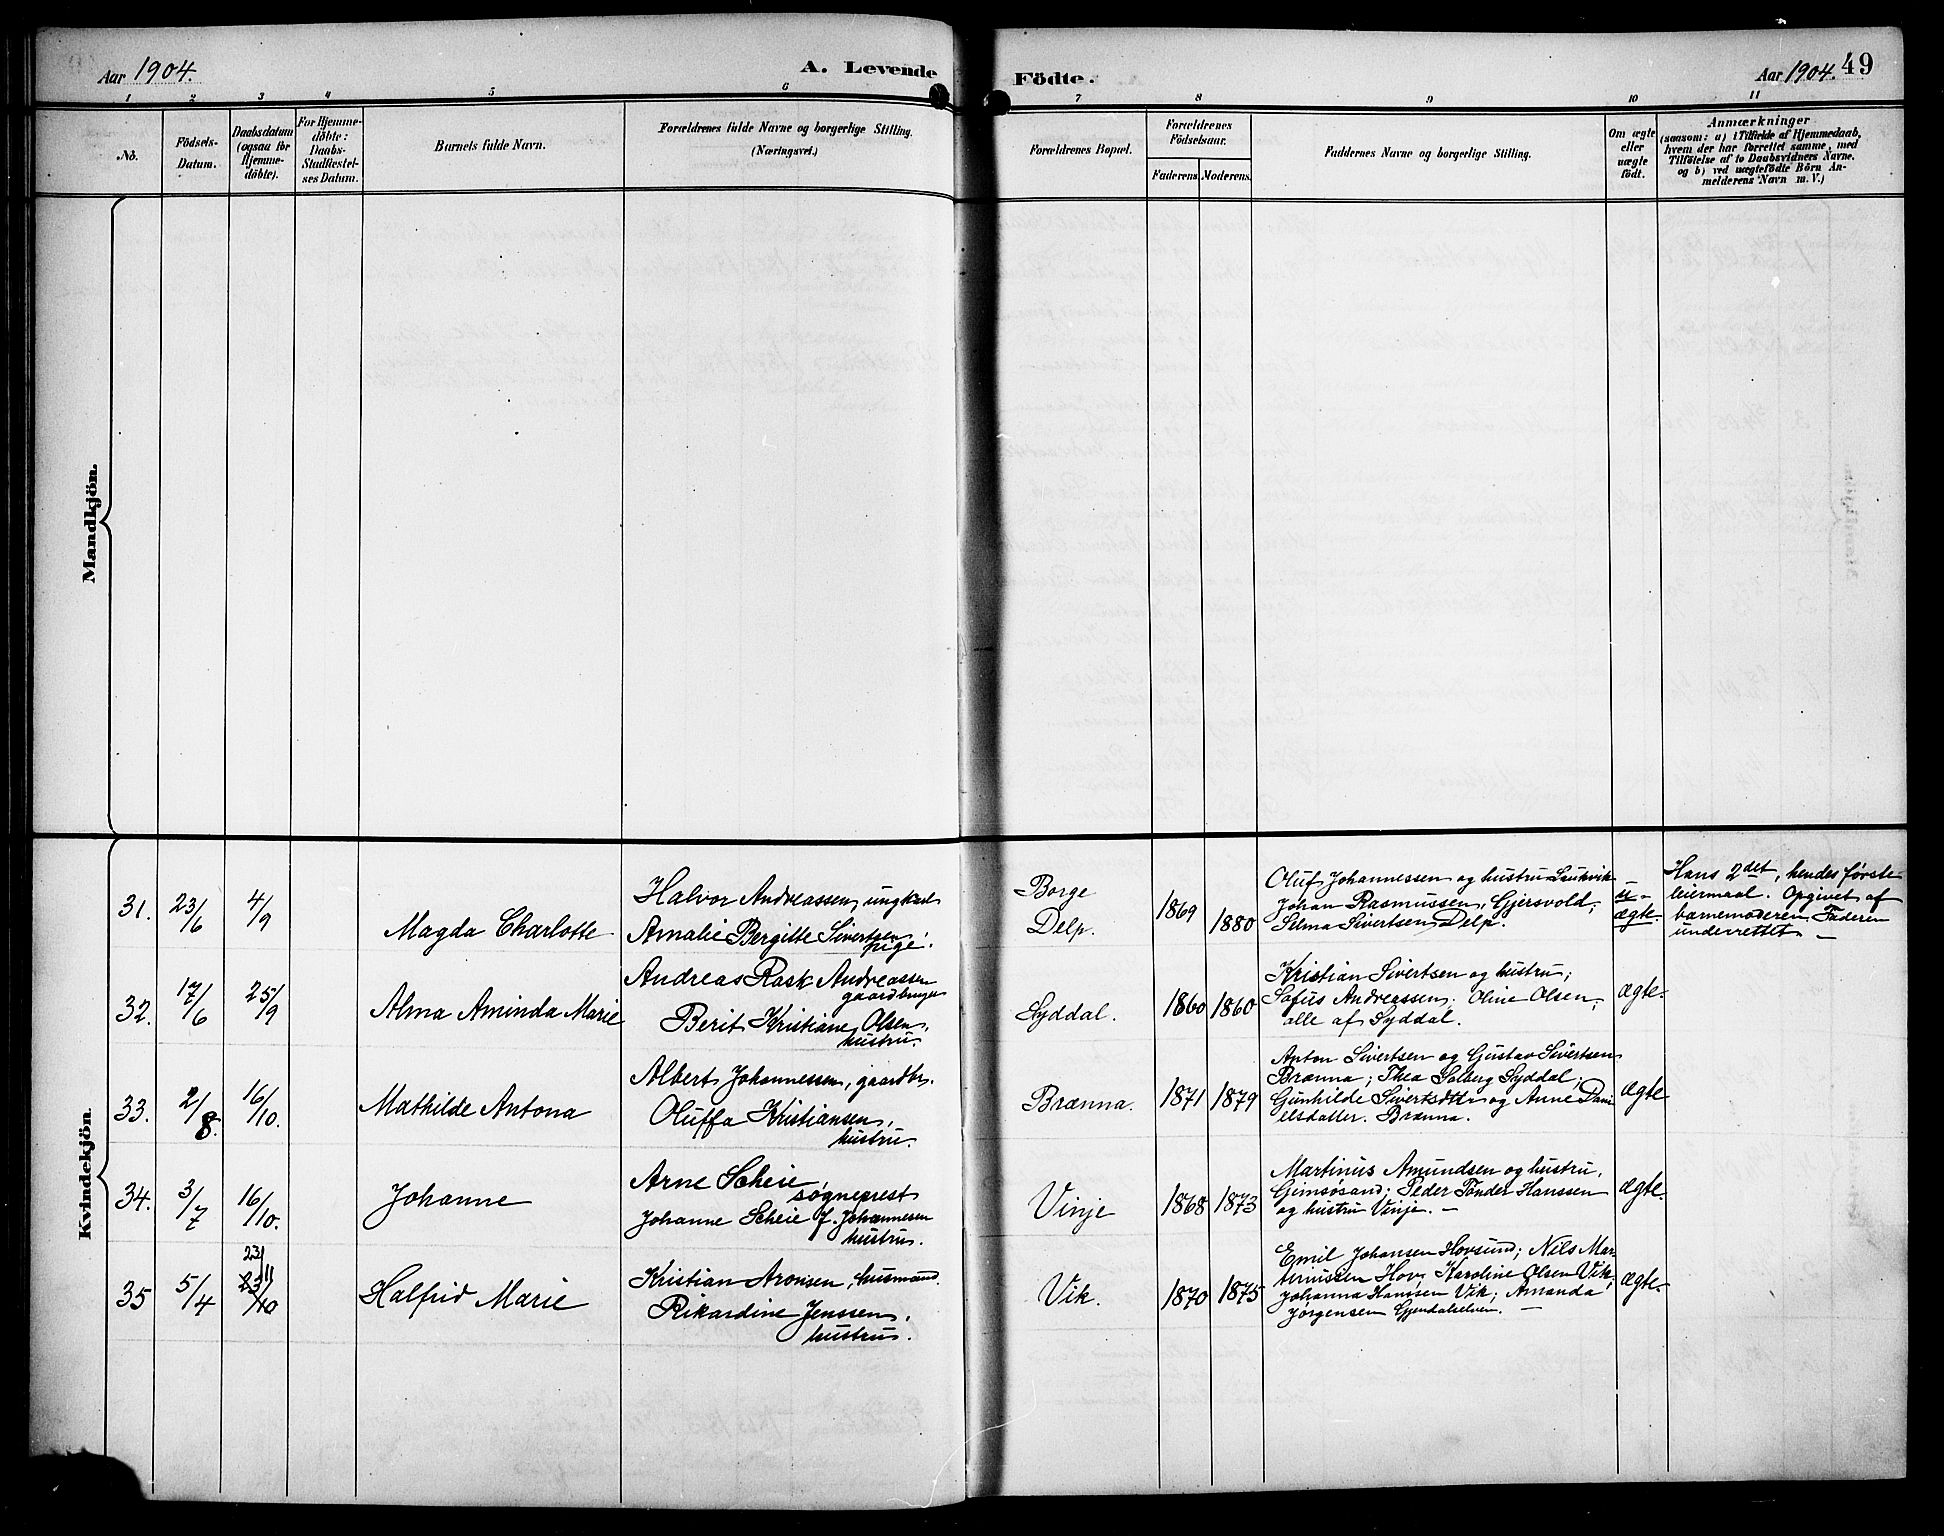 Aar 1904.
A. Levende Födte.
Aar 1904. 49
1 2 3 4 5 6 7 8 9 10 11
No.
Födsels-
Datum.
Daabsdatum
(ogsaa for
Hjemme-
döbte).
For Hjemme-
döbte:
Daabs-
Stadfæstel-
ses Datum.
Barnets fulde Navn.
Forældrenes fulde Navne og borgerlige Stilling.
(Næringsvei.)
Forældrenes Bopæl.
Forældrenes
Födselsaar.
Faderens Moderens.
Faddernes Navne og borgerlige Stilling.
Om ægte
eller
uægte
födt.
Anmærkninger
(saasom: a) i Tilfælde af Hjemmedaab,
hvem der har forrettet samme, med
Tilföielse af to Daabsvidners Navne.
og b) ved uægtefödte Börn An-
melderens Navn m. V.)
Mandkjön.
Kvindekjön.
31. 23/6 4/9
Magda Charlotte
Halvor Andreassen, ungkarl
Amalie Bergitte Sivertsen,
pige.
Borge
Delp.
1869 1880
Oluf Johannessen og hustru
Johan Rasmussen, Gjersvold;
Selma Sivertsen Delp.
u-
ægte.
Hans 2det, hendes første
leiermaal. Opgivet af
barnemoderen. Faderen
underrettet. —
32. 17/6 25/9
Alma Aminda Marie
Andreas Rask Andreassen
gaardbruger
Berit Kristiane Olsen,
hustru.
Syddal.
1860 1860
Kristian Sivertsen og hustru;
Sofus Andreassen; Oline Olsen,
alle af Syddal.
ægte.
33. 2/8. 16/10.
Mathilde Antona
Albert Johannessen, gaardbr.
Oluffa Kristiansen,
hustru.
Brænna.
1871 1879
Anton Sivertsen og Gustav Sivertsen
Brænna; Thea Solberg Syddal;
Gunhilde Sivertsdttr og Anne Dani
elsdatter. Brænna.
ægte
34. 3/7 16/10.
Johanne
Arne Scheie,
søgneprest
Johanne Scheie f. Johannesen
hustru.
Vinje
1868 1873
Martinus Amundsen og hustru,
Gimsøsand; Peder Tønder Hanssen
og hustru Vinje. —
ægte.
35 5/4 23/11
23/10
Halfrid Marie
Kristian Aronsen, husmand.
Rikardine Jenssen,
hustru.
Vik.
1870 1875
Emil Johansen Hovsund; Nils Mar-
tinussen Hov; Karoline Olsen Vik;
Johanna Hansen Vik; Amanda
Jørgensen Gjendalselven. —
ægte.